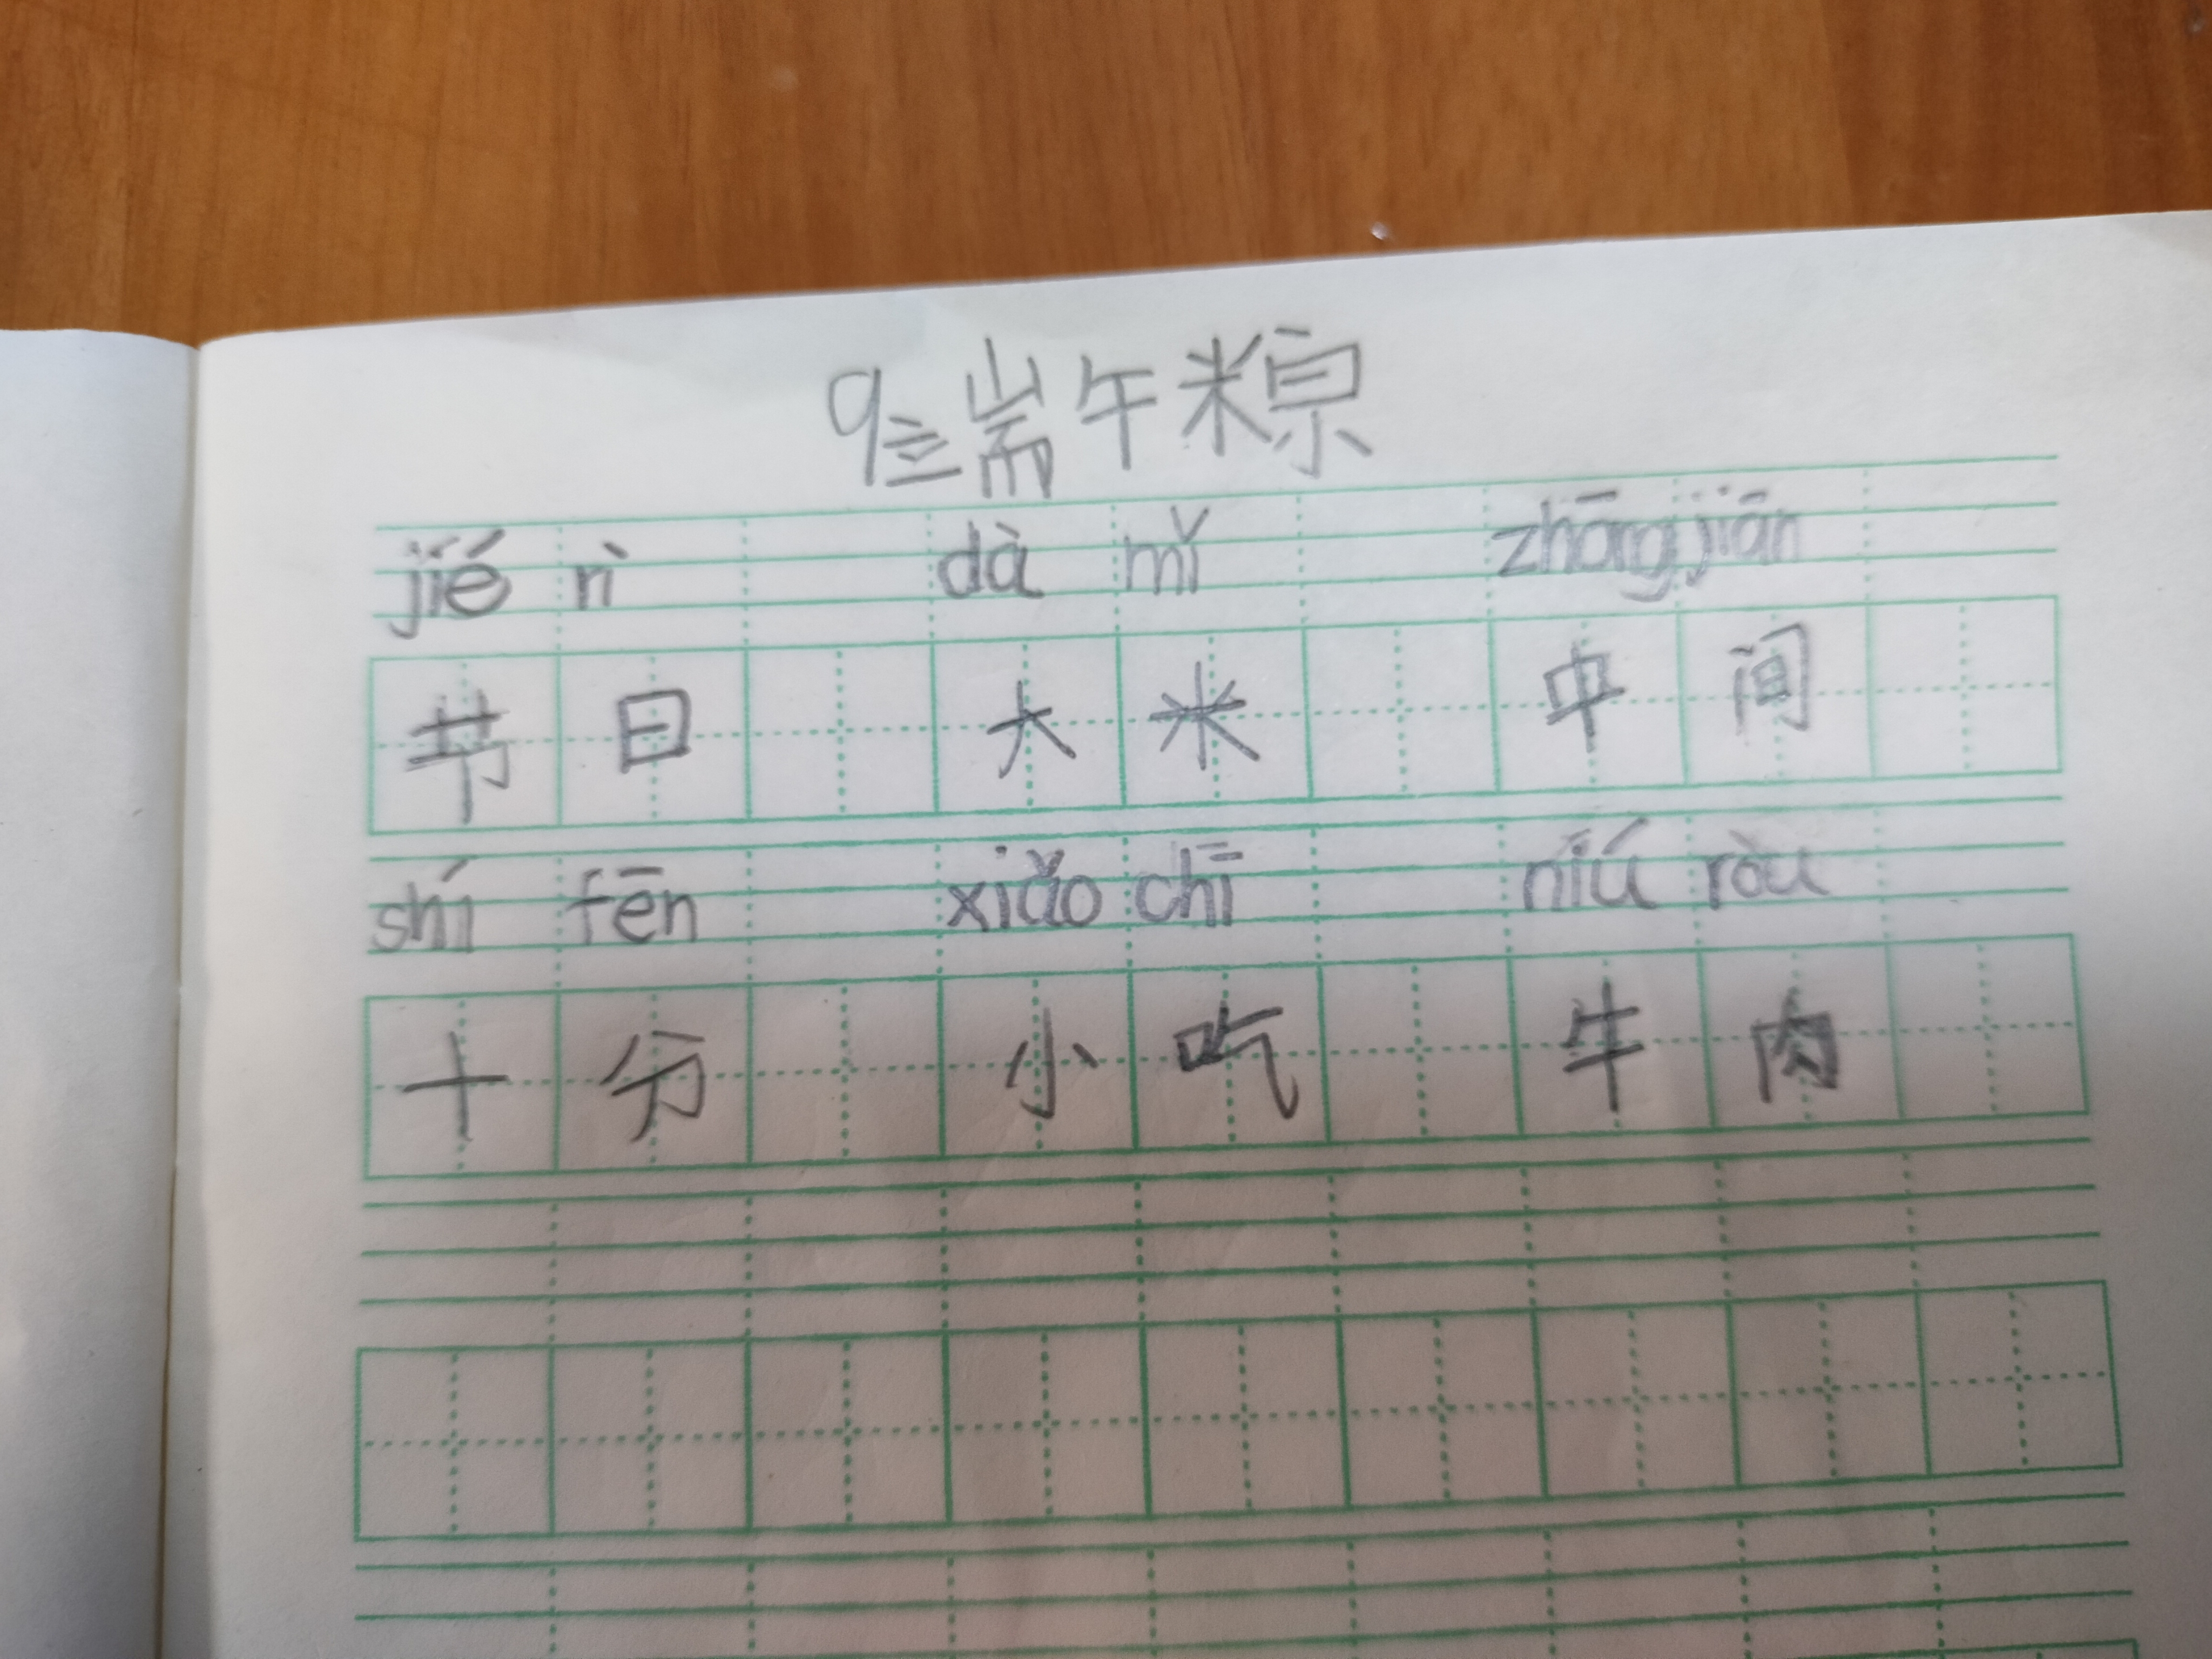 9端午粽
jié rì dà mǐ zhāng jiān
节日 大米 中间
shí fēn xiǎo chī niú ròu
十分 小吃 牛肉